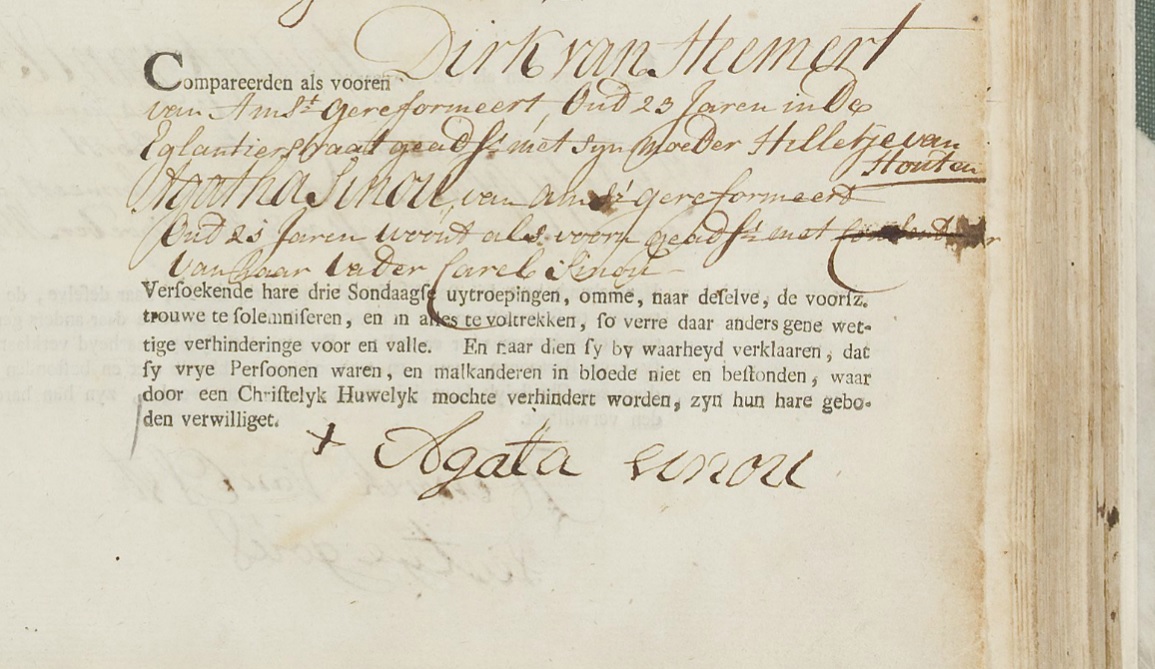 Compareerden als vooren Dirk van Heemert
van Amst gereformeert, Oud 23 Jaren in De
Eglantierstraat geadst met syn Moeder Hilletje van
Houten
Agatha Sinou, van Amst gereformeert
Oud 25 Jaren woont als voorn geadst met
van haar vader Carel Sinou
Versoekende hare drie Sondaagse uytroepingen, omme, naar deselve, de voorsz.
trouwe te solemniseren, en in alles te voltrekken, so verre daar anders gene wet-
tige verhinderinge voor en valle. En naar dien sy by waarheyd verklaaren, dat
sy vrye Persoonen waren, en malkanderen in bloede niet en bestonden, waar
door een Christelyk Huwelyk mochte verhindert worden, zyn hun hare gebo-
den verwilliget.
+ Agata Sinou